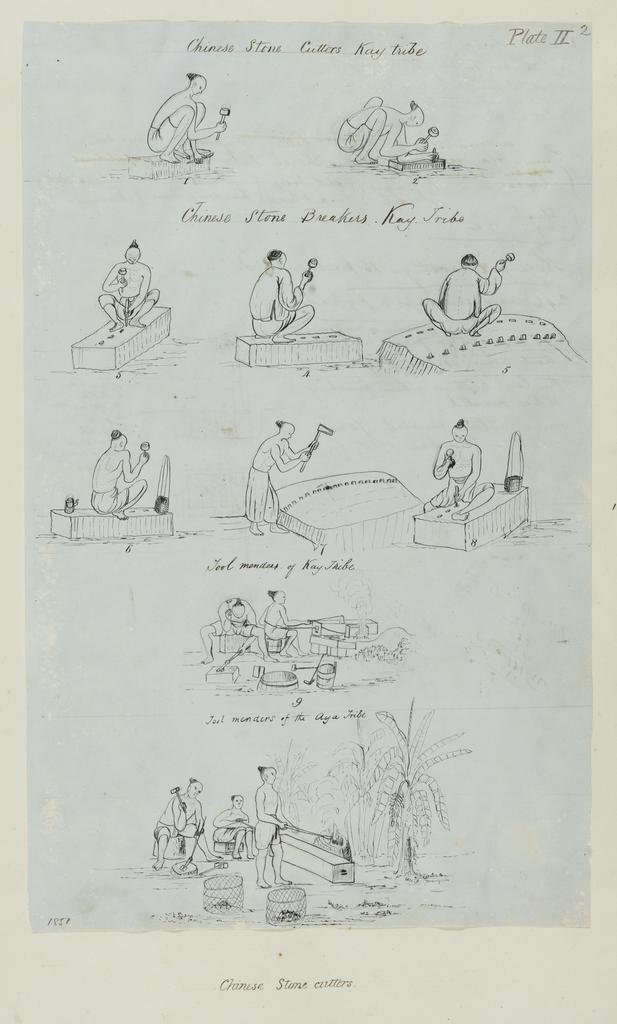 Plate II 2
Chinese Stone Cutters Kay tribe
1 2
Chinese Stone Breakers. Kay. Tribe
3 4 5
6 7 8
Tool menders of Kay Tribe
9
Tool menders of the Aya Tribe
1851
Chinese Stone cutters.